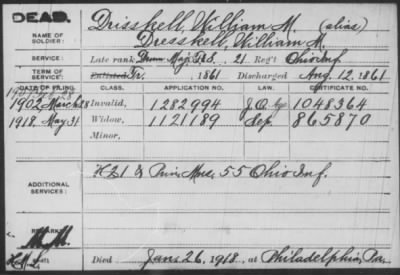 DEAD.
NAME OF SOLDIER:
Drisskell, William M. (alias)
Dresskell, William M.
SERVICE:
Late rank, Drum Maj. F&S. 21 Reg't Ohio Inf.
TERM OF SERVICE:
Enlisted 1861 Discharged Aug. 12, 1861
DATE OF FILING CLASS. APPLICATION NO. LAW. CERTIFICATE NO.
1902 March 28 Invalid, 1282994 1048364
1918. May 31 Widow, 1121189 Sep. 865870
Minor,
ADDITIONAL SERVICES:
H 21 & Prin. Mus. 55 Ohio Inf.
Died Jan. 26, 1918, at Philadelphia, Pa.